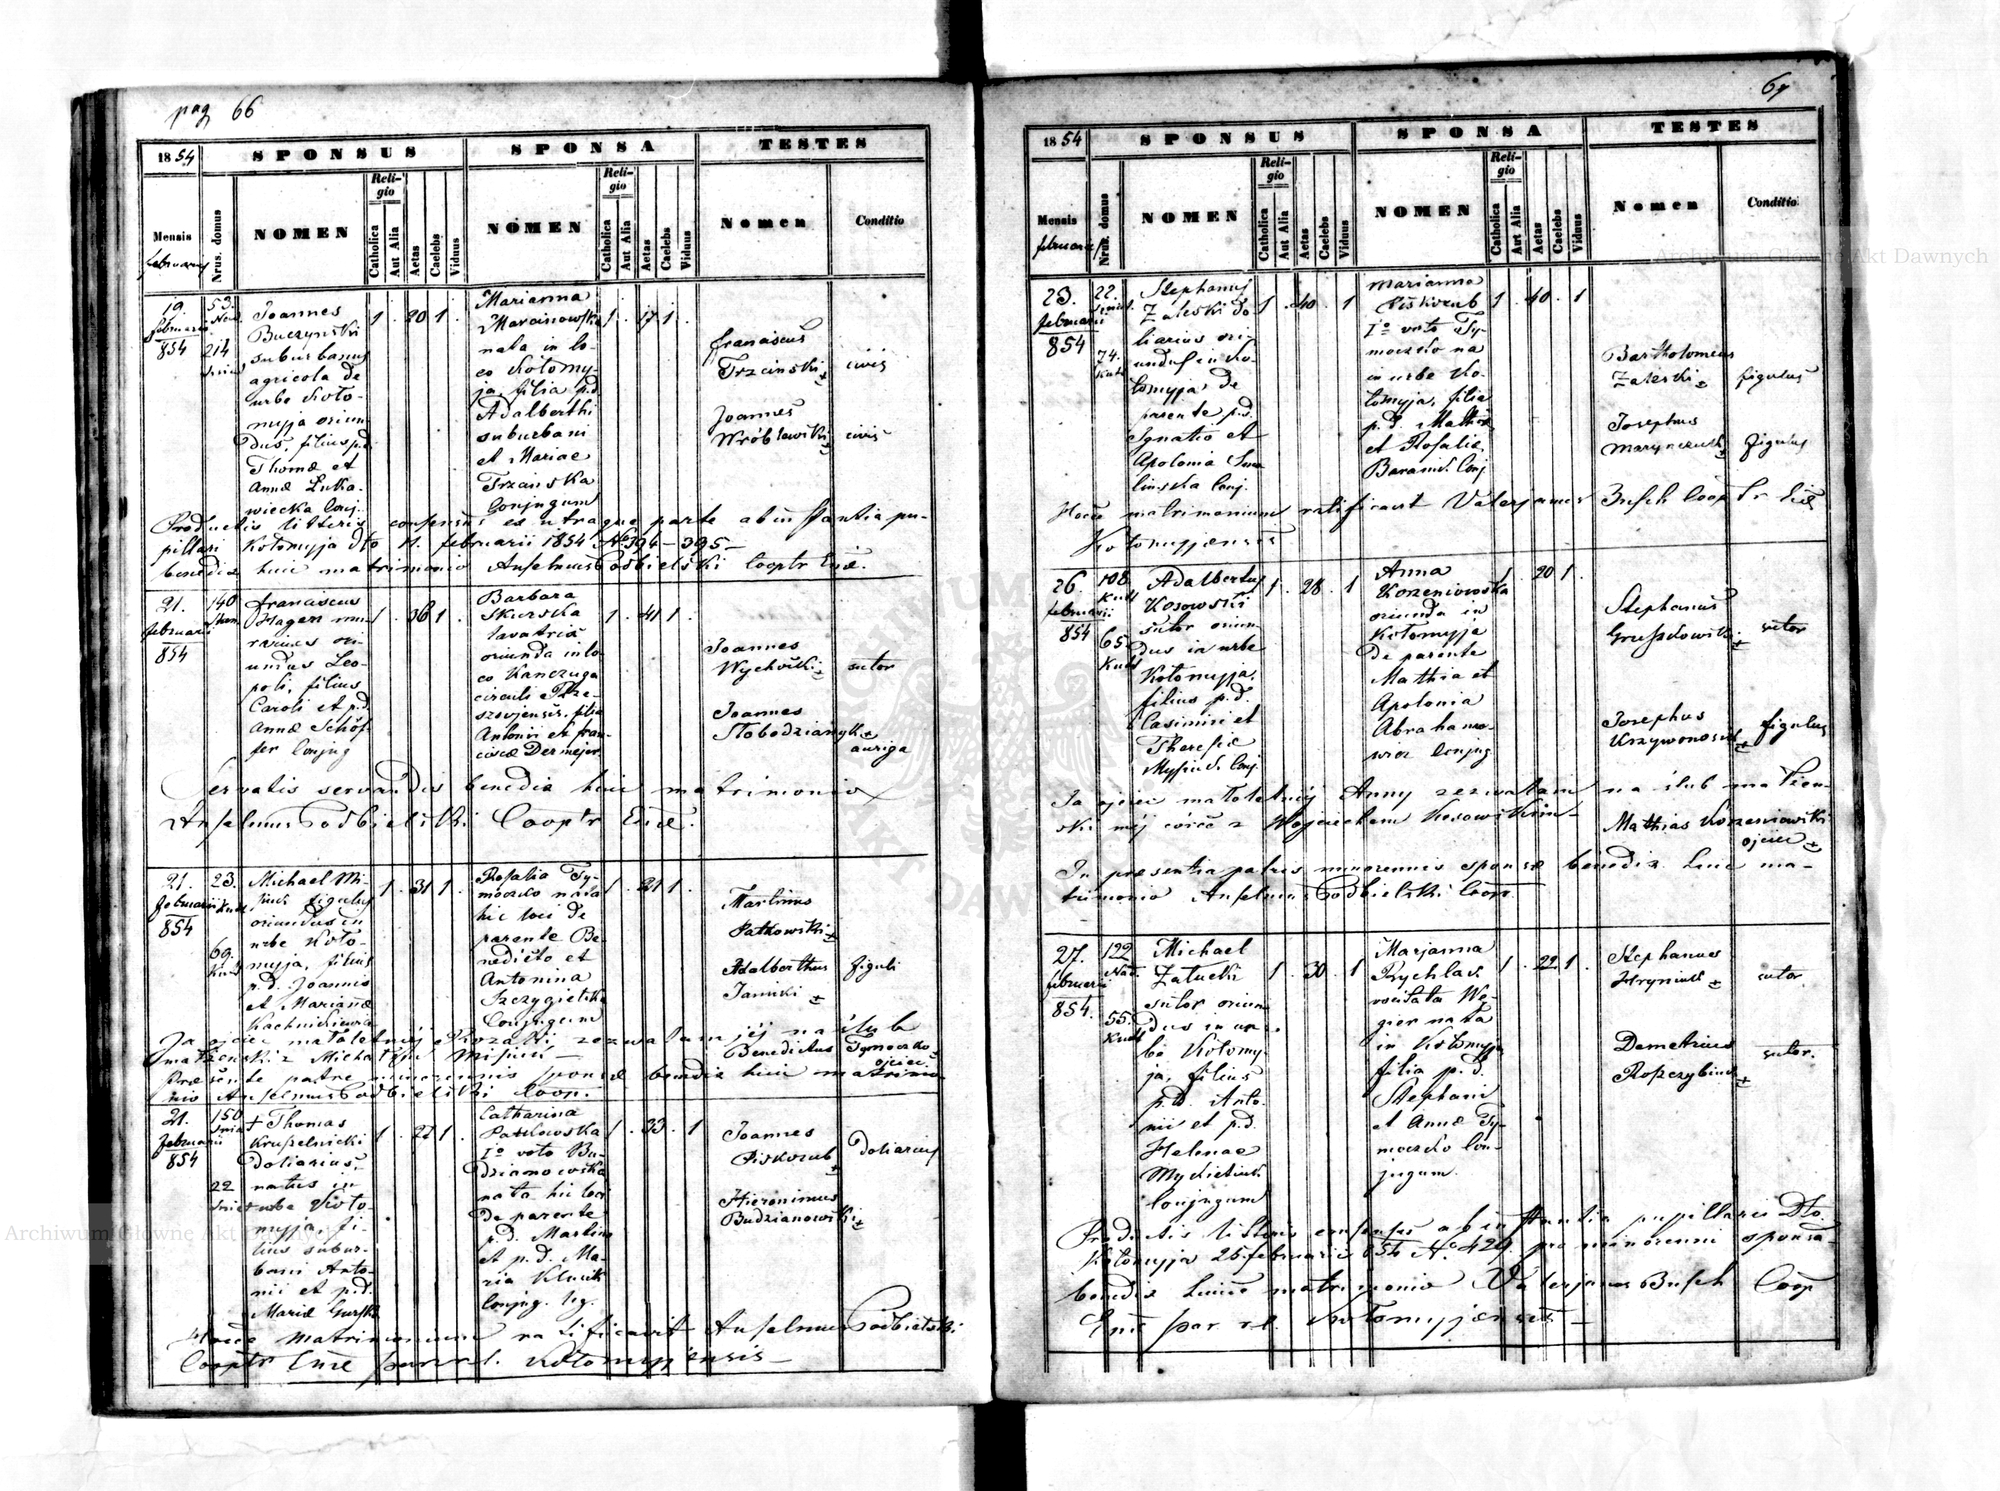 pag 66
1854
SPONSUS
SPONSA
TESTES
Mensis
februarii
Nrus. domus
NOMEN
Religio
Catholica
Aut Alia
Aetas
Caelebs
Viduus
NOMEN
Religio
Catholica
Aut Alia
Aetas
Caelebs
Viduus
Nomen
Conditio
19.
februarii
854
53.
214
Joannes
Buczynski
suburbanus
agricola de
urbe Koło-
myja oriun
dus, filius p.d.
Thomæ et
Annæ Luka
wiecka Conj.
1 . 20 1 .
Marianna
Marcinowska
nata in lo-
co Kołomy-
ja, filia p.d.
Adalberthi
suburbani
et Mariae
Trzcinska
Conjugum
1 . 17 1 .
franciscus
Trzcinski +
civis
Joannes
Wróblewski +
civis
Productis litteris consensus ex utraque parte ab instantia pu-
pillari Kołomyja dto 11. februarii 1854 No 394 - 395 -
benedix huic matrimonio Anselmus Podbielski Cooptr Eccl.
21.
februarii
854
140
franciscus
Hagen mu-
rarius ori-
undus Leo-
poli, filius
Caroli et p.d.
Annæ Schöf-
fer Conjug
1 . 36 1 .
Barbara
Skierska
lavatrix
oriunda in lo
co Kanczuga
circuli Rze-
szovjensis, filia
Antonii et fran-
ciscæ Dermejer
1 . 41 1
Joannes
Wychoski +
sutor
Joannes
Słobodzianyk +
auriga
Servatis servandis benedix huic matrimonio
Anselmus Podbielski Cooptr Eccl.
21.
februarii
854
23.
69.
Kutt
Michael Mi-
siuk figulus
oriundus in
urbe Koło-
myja, filius
p.d. Joannis
et Mariannæ
Kachnikiewicz
1 . 31 1 .
Rosalia Ty-
moczko nata
hic loci de
parente Be-
nedicto et
Antonina
Szczygielska
Conjugum
1 . 21 1 .
Martinus
Patkowski +
Adalberthus
Janicki +
figuli
Ja ojciec małoletniéj Rozalii zezwalam jéj na ślub
małżenski z Michałem Misiuk -
Benedictus Tymoczko
ojciec
Præsente patre minorennis sponsæ benedix huic matrimo-
nio Anselmus Podbielski Coop.
21.
februarii
854
150
22
+ Thomas
Kruszelnicki
Doliarius,
natus in
urbe Koło-
myja, fi-
lius subur-
bani Anto-
nii et p.d.
Mariæ Gurska
1 . 22 1 .
Catharina
Pawłowska
Io voto Bu-
dzianowska
nata hic loci
de parente
p.d. Martino
et p.d. Ma-
ria Klucik
Conjug. lig.
1 . 33 . 1
Joannes
Piskozub +
Doliarius
Hieronimus
Budzianowski +
Hocce matrimonium ratificavit Anselmus Podbielski
Cooptr Eccl. par. r.l. Kołomyjensis -
67
1854
SPONSUS
SPONSA
TESTES
Mensis
februarii
Nrus. domus
NOMEN
Religio
Catholica
Aut Alia
Aetas
Caelebs
Viduus
NOMEN
Religio
Catholica
Aut Alia
Aetas
Caelebs
Viduus
Nomen
Conditio
23.
februarii
854
22.
74.
Kutt
Stephanus
Zaleski do
liarius ori
undus in Ko-
łomyja de
parente p.d.
Ignatio et
Apolonia
Conj.
1 . 40 . 1
Marianna
Piskozub
Io voto Ty-
moczko na
in urbe Ko-
łomyja, filia
p.d. Mathiæ
et Rosaliæ
Conj
1 . 40 . 1
Bartholomeus
Zaleski +
figulus
Josephus
Marynczuk +
figulus
Hocce matrimonium ratificavit Valerjanus Busch Cooptr Eccl
Kołomyjensis
26.
februarii
854
108.
Kutt
65.
Kutt
Adalbertus
Kosowski
sutor oriun
dus in urbe
Kołomyja,
filius p.d.
Casimiri et
Theresiæ
Conj.
1 . 28 . 1
Anna
Korzeniowska
oriunda in
Kołomyja
de parente
Mathia et
Apolonia
Abrahamo-
wicz Conjug
1 . 20 1 .
Stephanus
Gruszkowski +
sutor
Josephus
Krzywonosiuk +
figulus
Ja ojciec małoletniéj Anny zezwalam na ślub małżen-
ski méj córce z Wojciechem Kosowskim -
Mathias Korzeniowski
ojciec +
In presentia patris minorennis sponsæ benedix huic ma-
trimonio Anselmus Podbielski Coop.
27.
februarii
854.
122
55.
Kutt
Michael
Załucki
sutor oriun
dus in ur-
be Kołomy-
ja, filius
p.d. Anto-
nii et p.d.
Helenae
Mykietiuk
Conjugum
1 . 30 . 1
Marjanna
Rychlas
vocitata Wę-
gier nata
in Kołomyja
filia p.d.
Stephani
et Annæ Ty-
moczko Con-
jugum.
1 . 22 1 .
Stephanus
Hryniuk +
sutor.
Demetrius
Ropczybiuk +
sutor.
Productis litteris consensus ab instantia pupillari Dto.
Kołomyja 25 februarii 854 No 429. pro minorenni sponsa -
benedix huicce matrimonio Valerjanus Busch Coop
Eccl par r.l. Kołomyjensis -
Archiwum Główne Akt Dawnych
Archiwum Główne Akt Dawnych